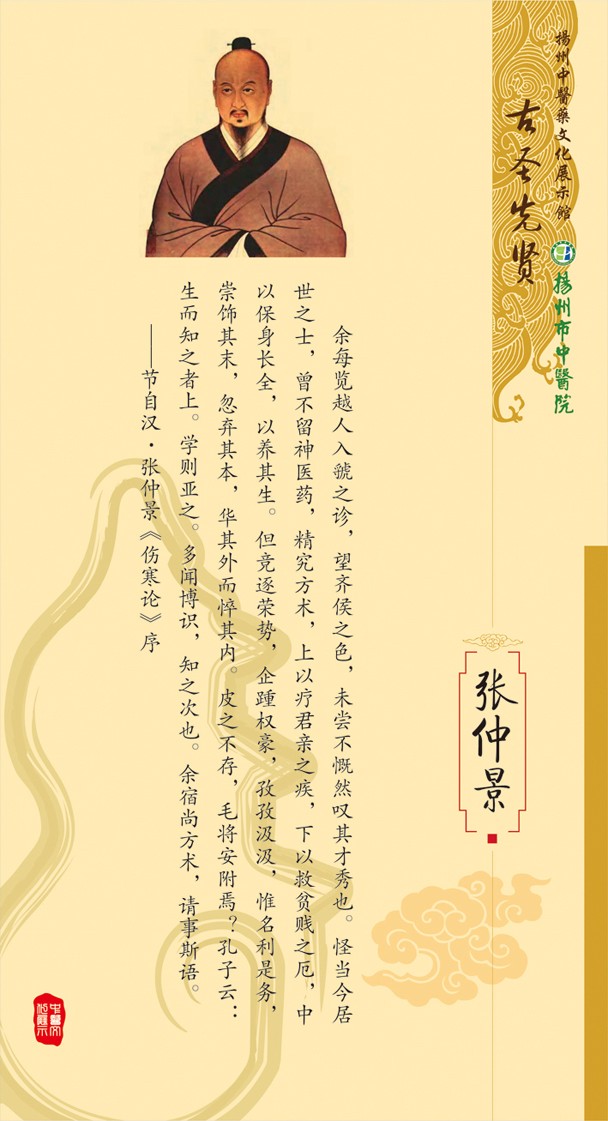 揚州中醫藥文化展示館
揚州市中醫院
古圣先贤
张仲景
余每览越人入虢之诊，望齐侯之色，未尝不慨然叹其才秀也。怪当今居
世之士，曾不留神医药，精究方术，上以疗君亲之疾，下以救贫贱之厄，中
以保身长全，以养其生。但竞逐荣势，企踵权豪，孜孜汲汲，惟名利是务，
崇饰其末，忽弃其本，华其外而悴其内。皮之不存，毛将安附焉？孔子云：
生而知之者上。学则亚之。多闻博识，知之次也。余宿尚方术，请事斯语。
——节自汉·张仲景《伤寒论》序